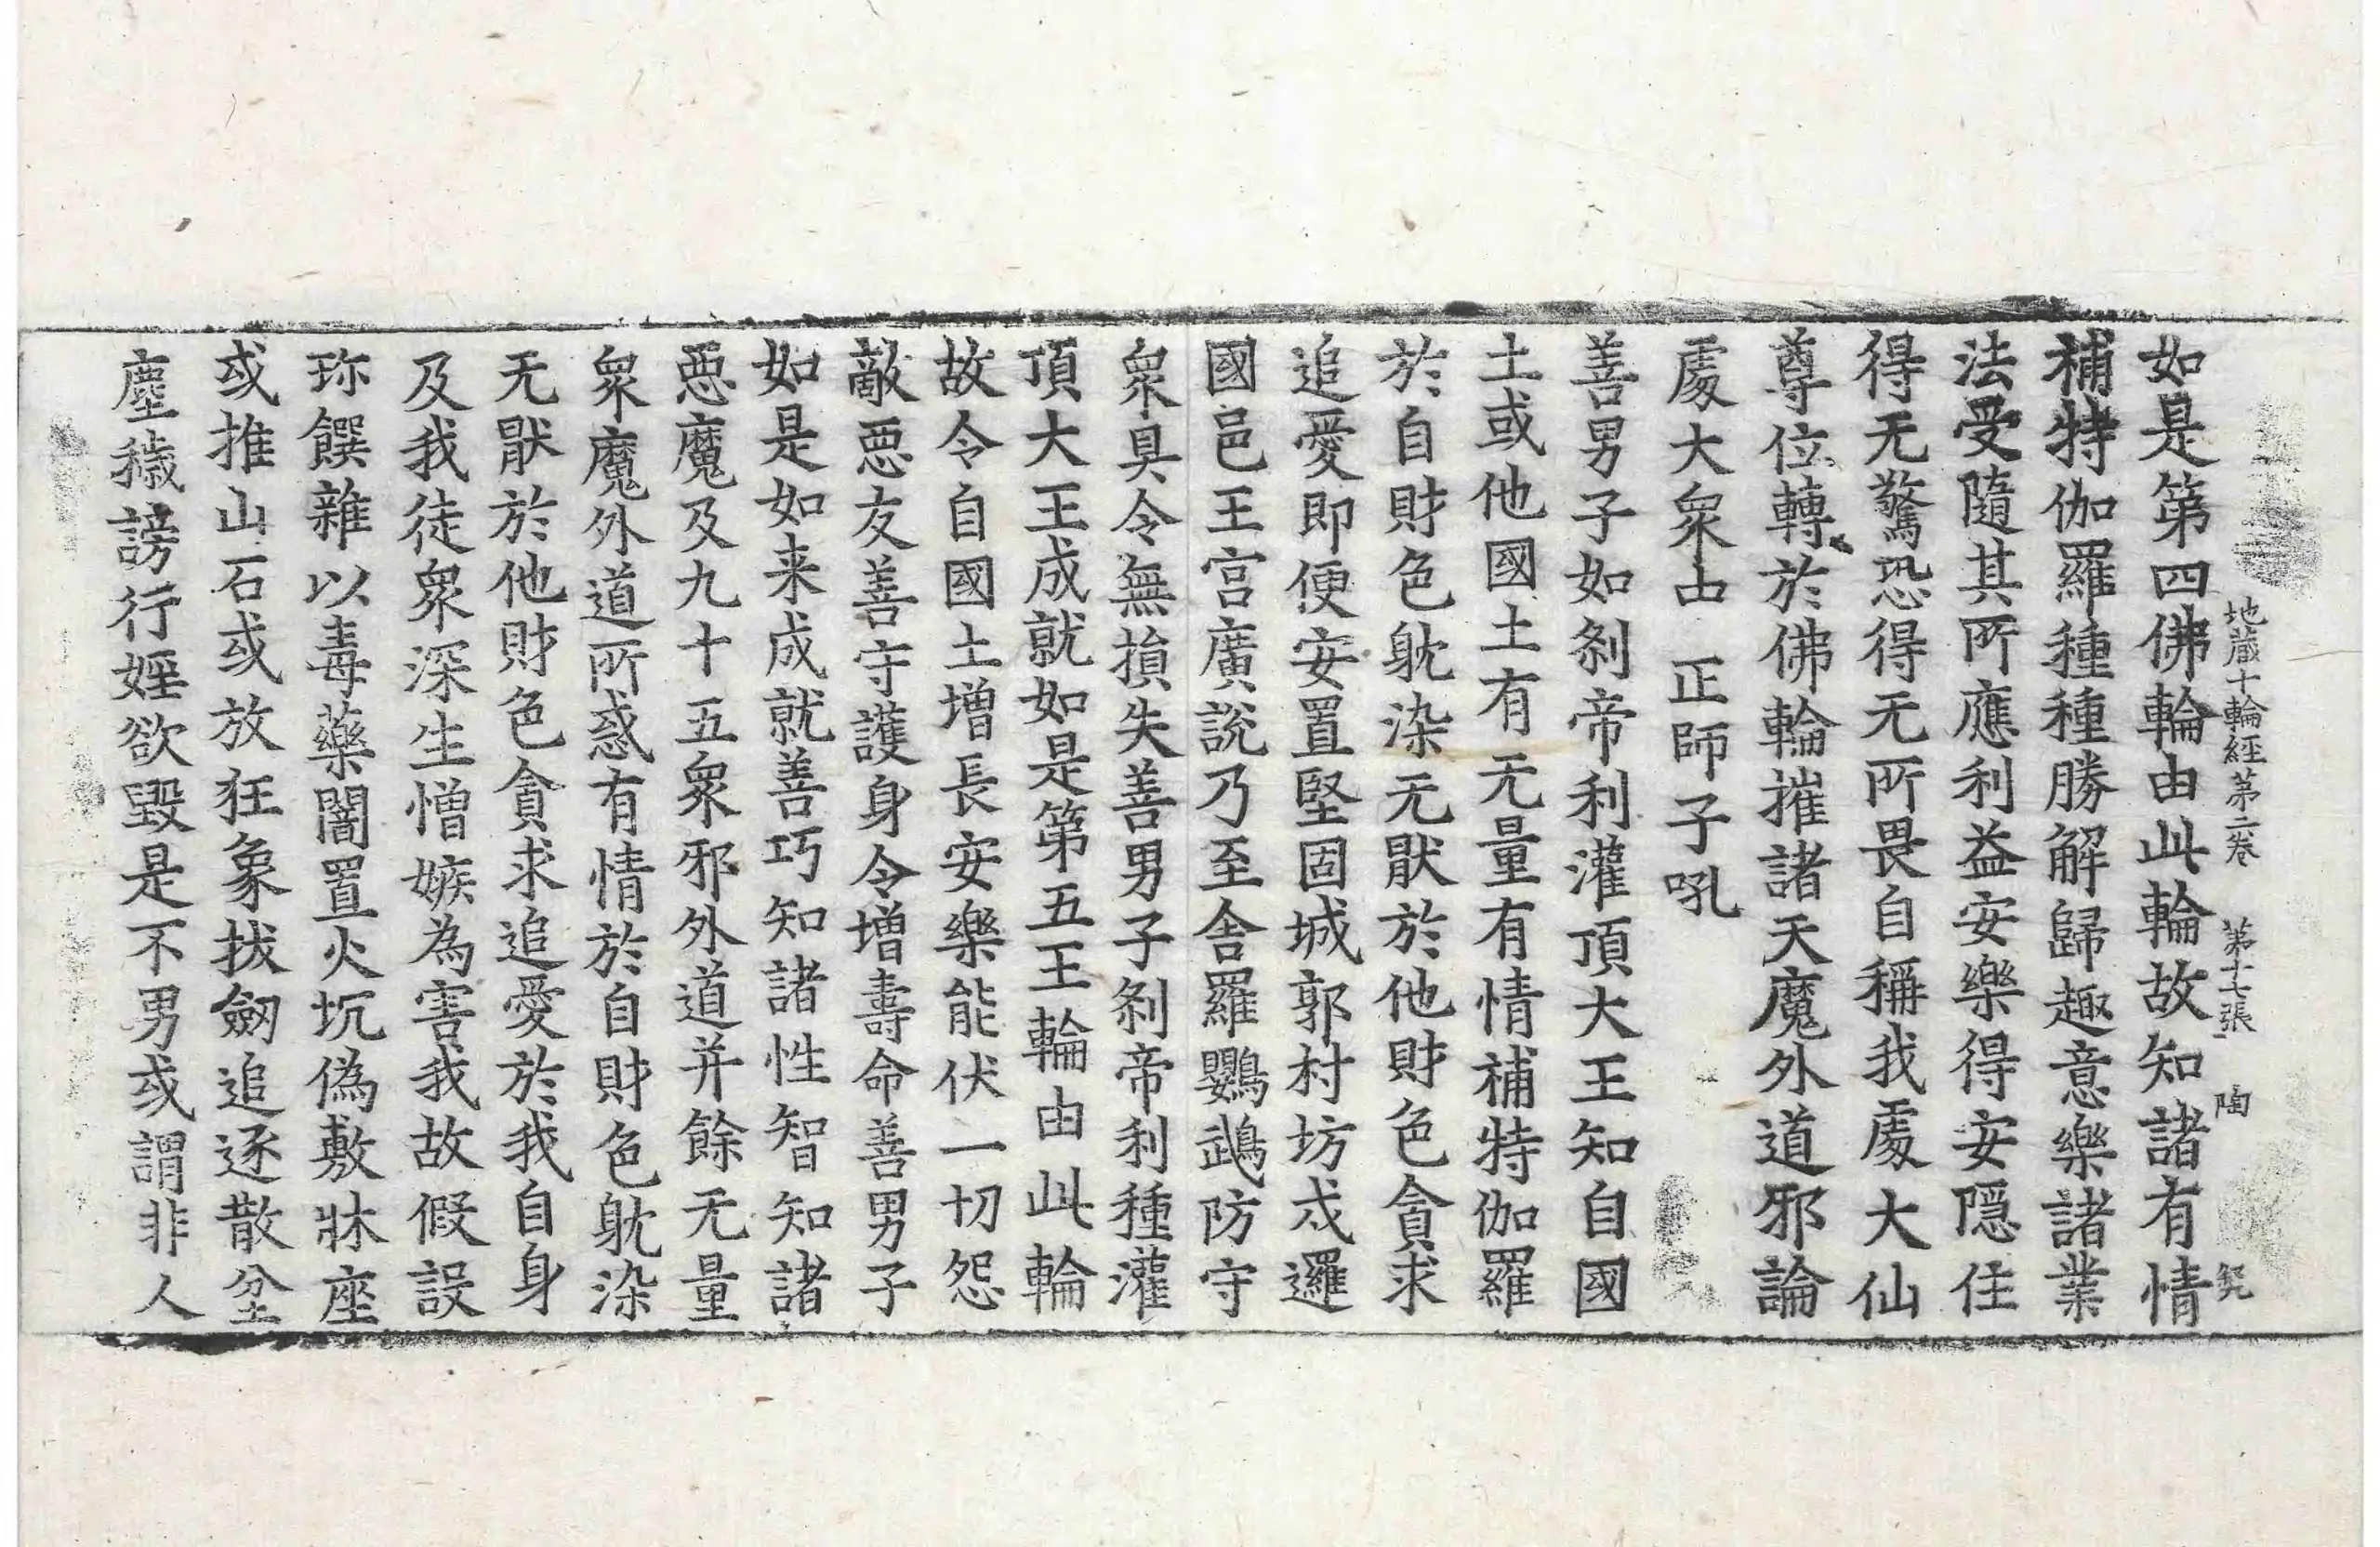 地藏十輪經第二卷 第十七張 陶
如是第四佛輪由此輪故知諸有情
補特伽羅種種勝解歸趣意樂諸業
法受隨其所應利益安樂得安隱住
得无驚恐得无所畏自稱我處大仙
尊位轉於佛輪摧諸天魔外道邪論
處大衆中正師子吼
善男子如剎帝利灌頂大王知自國
土或他國土有无量有情補特伽羅
於自財色躭染无猒於他財色貪求
追愛即便安置堅固城郭村坊戍邏
國邑王宮廣說乃至舍羅鸚鵡防守
衆具令無損失善男子剎帝利種灌
頂大王成就如是第五王輪由此輪
故令自國土增長安樂能伏一切怨
敵惡友善守護身令增壽命善男子
如是如来成就善巧知諸性智知諸
惡魔及九十五衆邪外道并餘无量
衆魔外道所惑有情於自財色躭染
无猒於他財色貪求追愛於我自身
及我徒衆深生憎嫉為害我故假設
珎饌雜以毒藥闇置火坑偽敷牀座
或推山石或放狂象拔劒追逐散坌
塵穢謗行婬欲毀是不男或謂非人